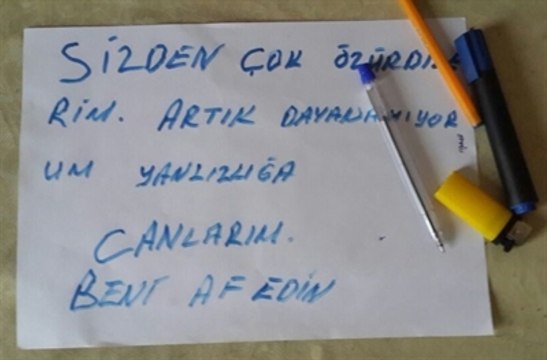 SİZDEN ÇOK ÖZÜRDİLE
RİM. ARTIK DAYANAMIYOR
UM YANLIZLIĞA
CANLARIM.
BENİ AFEDİN